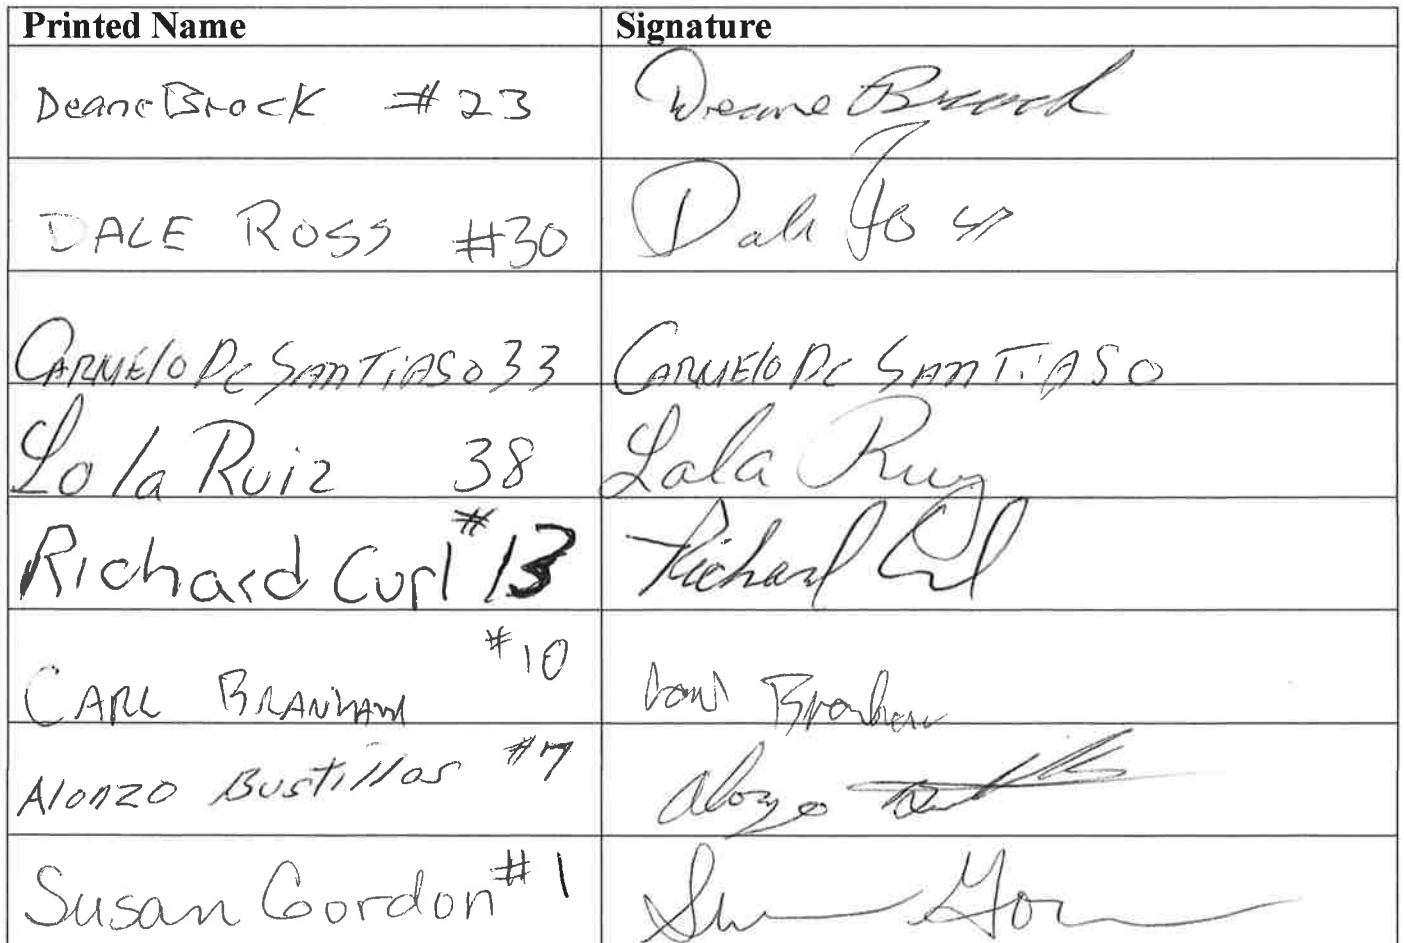 Printed Name Signature
Deane Brock #23 Deane Brock
DALE ROSS #30 Dale Ross
CARMElO De SANTiAGO 33 CARMElO De SANTiAGO
Lola Ruiz 38 Lola Ruiz
Richard Curl #13 Richard Curl
CARL BRANHAM #10 Carl Branham
Alonzo Bustillos #7 Alonzo
Susan Gordon #1